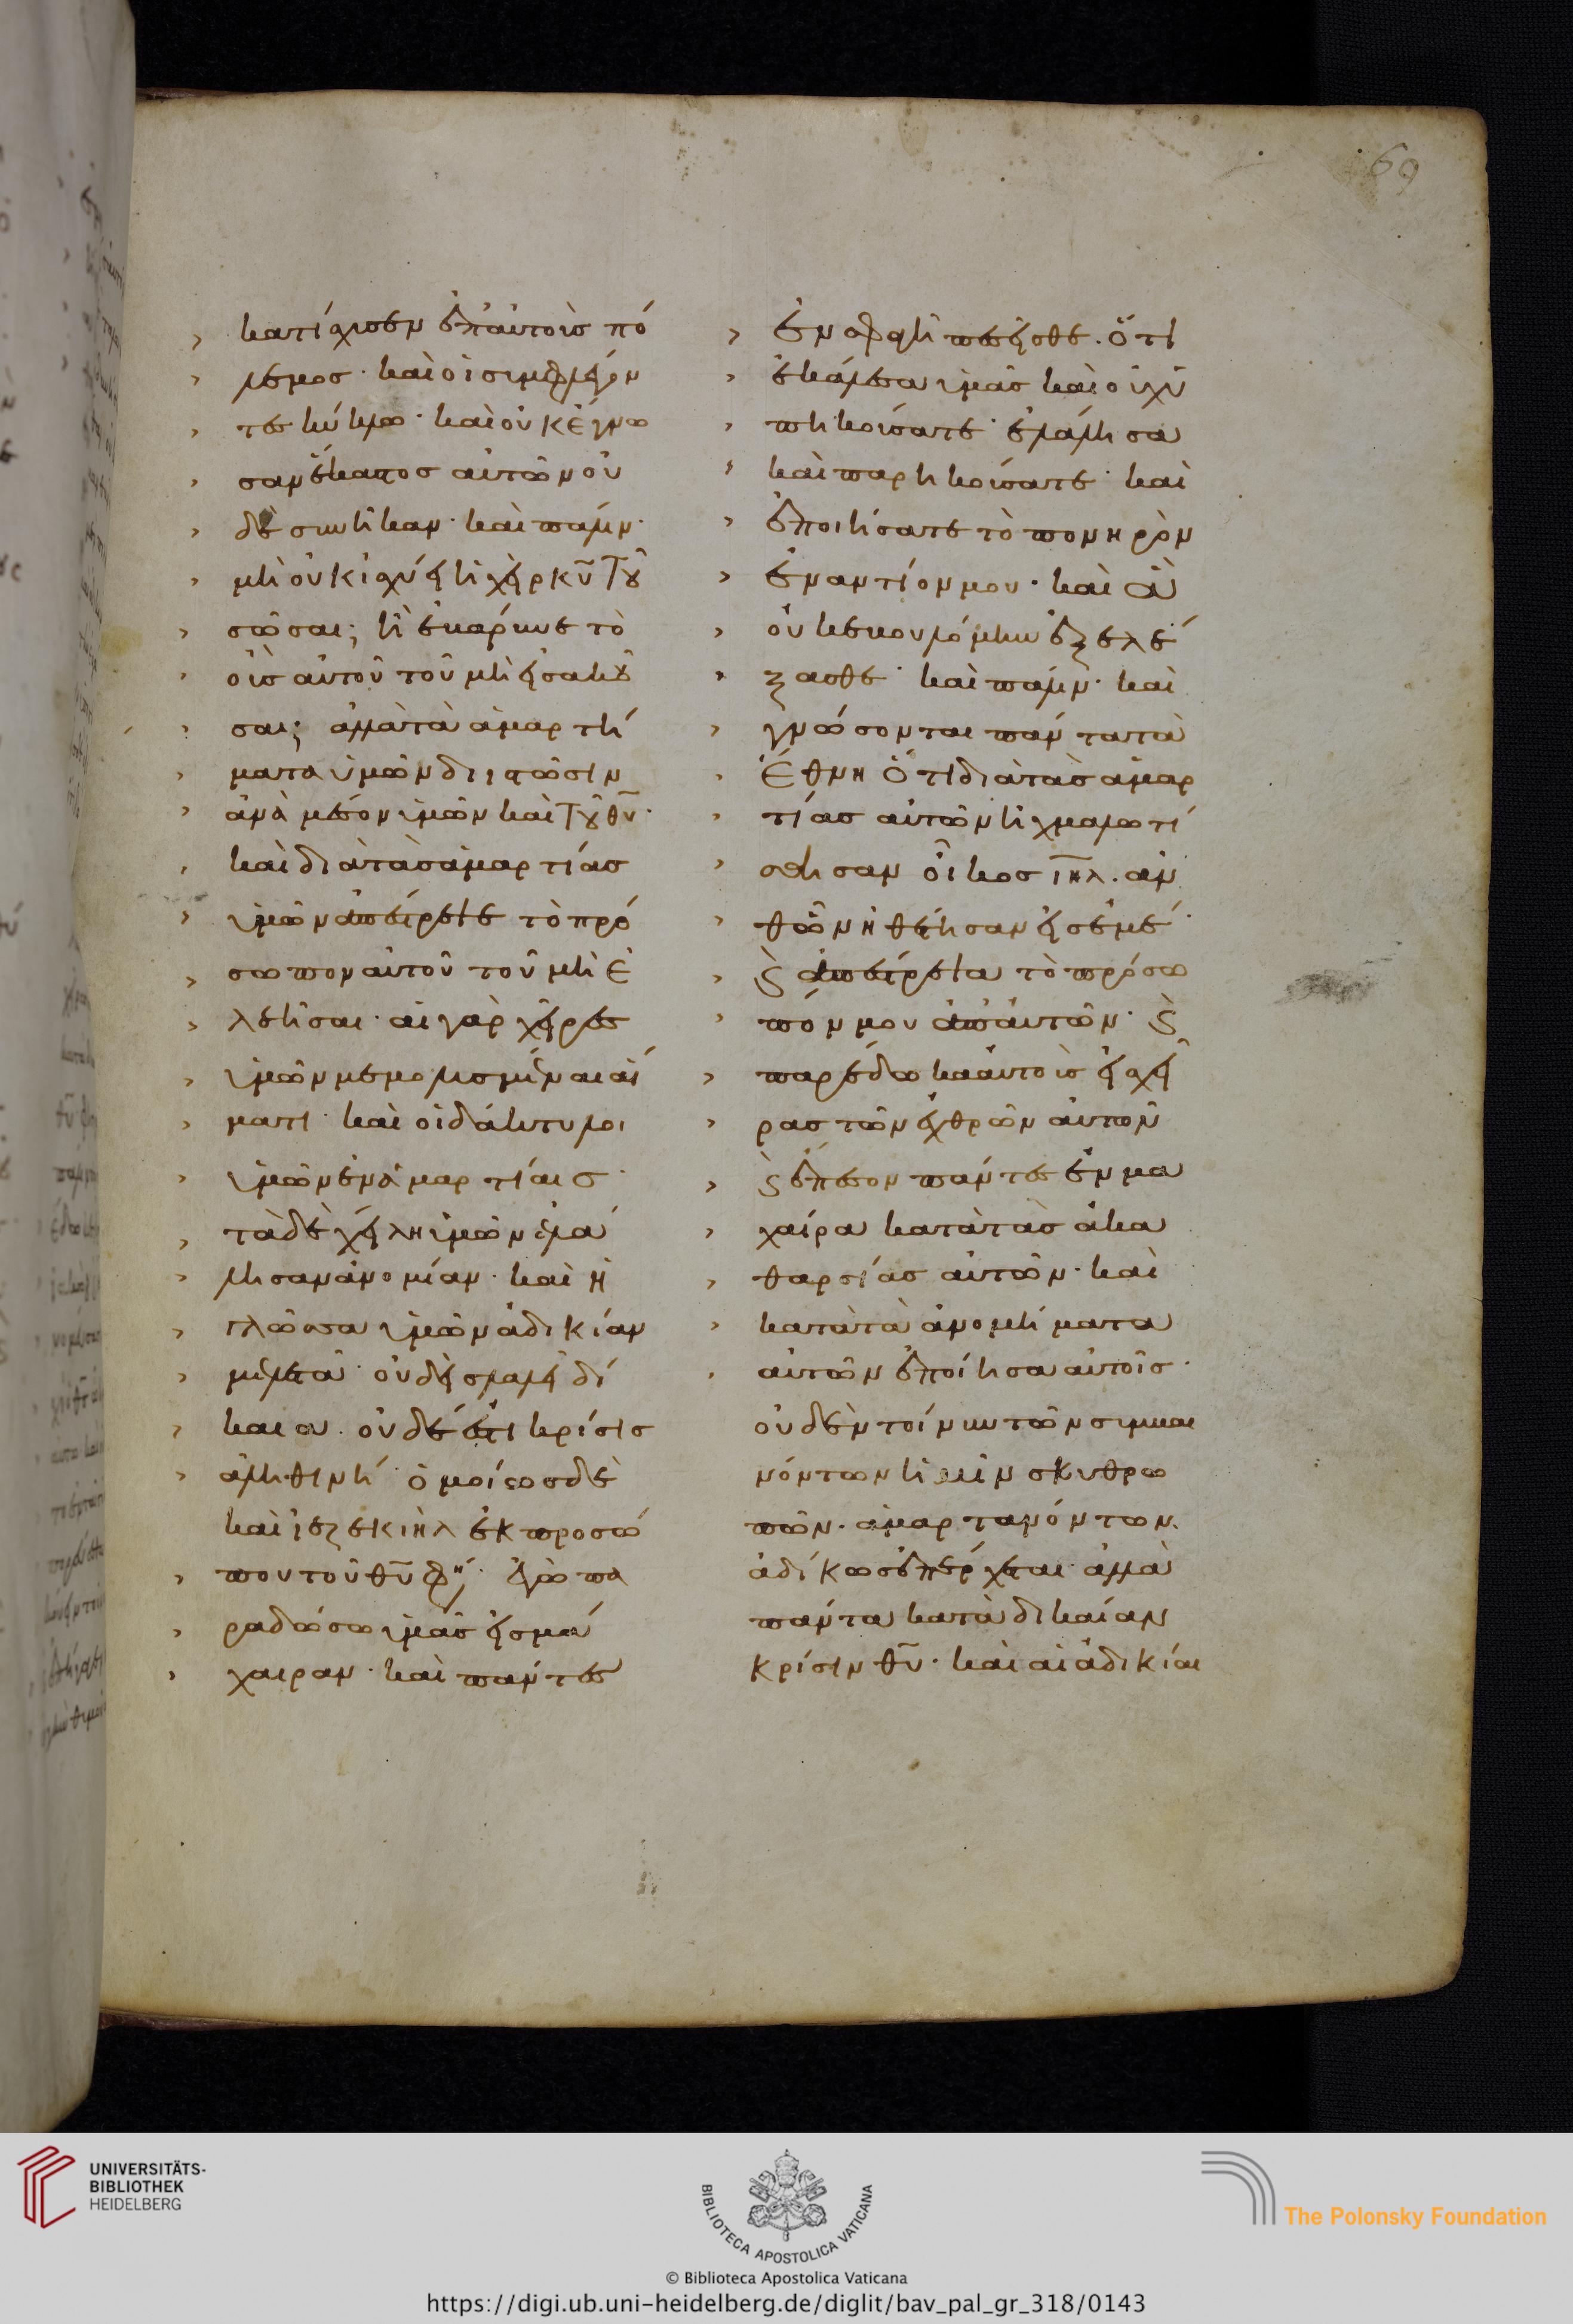 69
κατίσχυσεν ἐπ' αὐτοὺς πό
λεμος· καὶ οἱ συμφλέγον
τες κύκλω· καὶ οὐκ ἔγνω
σαν ἕκαστος αὐτῶν οὐ
δὲ συνῆκαν· καὶ πάλιν·
μὴ οὐκ ἰσχύει ἡ χεὶρ κ̅υ̅ τοῦ
σῶσαι; ἢ ἐβάρυνε τὸ
οὖς αὐτοῦ τοῦ μὴ εἰσακοῦ
σαι; ἀλλὰ τὰ ἁμαρτή
ματα ὑμῶν διιστῶσιν
ἀνὰ μέσον ὑμῶν καὶ τοῦ θ̅υ̅·
καὶ διὰ τὰς ἁμαρτίας
ὑμῶν ἀπέστρεψε τὸ πρό
σωπον αὐτοῦ τοῦ μὴ ἐ
λεῆσαι· αἱ γὰρ χεῖρες
ὑμῶν μεμολυσμέναι αἵ
ματι· καὶ οἱ δάκτυλοι
ὑμῶν ἐν ἁμαρτίαις·
τὰ δὲ χείλη ὑμῶν ἐλά
λησαν ἀνομίαν· καὶ ἡ
γλῶσσα ὑμῶν ἀδικίαν
μελετᾶ· οὐδεὶς λαλεῖ δί
καια· οὐδέ ἐστι κρίσις
ἀληθινή· ὁμοίως δὲ
καὶ ἰεζεκιὴλ ἐκ προσώ
που τοῦ θ̅υ̅ φη· ἐγὼ πα
ραδώσω ὑμᾶς εἰς μά
χαιραν· καὶ πάντες
ἐν σφαγῆ πεσεῖσθε. ὅτι
ἐκάλεσα ὑμᾶς καὶ οὐχ ὑ
πηκούσατε· ἐλάλησα
καὶ παρηκούσατε· καὶ
ἐποιήσατε τὸ πονηρὸν
ἐναντίον μου· καὶ ἃ
οὐκ ἐβουλόμην ἐξελέ
ξασθε· καὶ πάλιν· καὶ
γνώσονται πάντα τὰ
ἔθνη ὅτι διὰ τὰς ἁμαρ
τίας αὐτῶν ἠχμαλωτί
σθησαν οἶκος ι̅η̅λ̅. ἀν
θ' ὧν ἠθέτησαν εἰς ἐμέ·
ϛ ἀπέστρεψα τὸ πρόσω
πόν μου ἀπ' αὐτῶν· ϛ
παρέδωκα αὐτοὺς εἰς χεῖ
ρας τῶν ἐχθρῶν αὐτῶν
ϛ ἔπεσον πάντες ἐν μα
χαίρα κατὰ τὰς ἀκα
θαρσίας αὐτῶν· καὶ
κατὰ τὰ ἀνομήματα
αὐτῶν ἐποίησα αὐτοῖς·
οὐδὲν τοίνυν τῶν συμβαι
νόντων ἡμῖν σκυθρω
πῶν. ἁμαρτανόντων
ἀδίκως ἐπέρχεται· ἀλλὰ
πάντα κατὰ δικαίαν
κρίσιν θ̅υ̅· καὶ αἱ ἀδικίαι
UNIVERSITÄTS-
BIBLIOTHEK
HEIDELBERG
BIBLIOTECA APOSTOLICA VATICANA
The Polonsky Foundation
© Biblioteca Apostolica Vaticana
https://digi.ub.uni-heidelberg.de/diglit/bav_pal_gr_318/0143